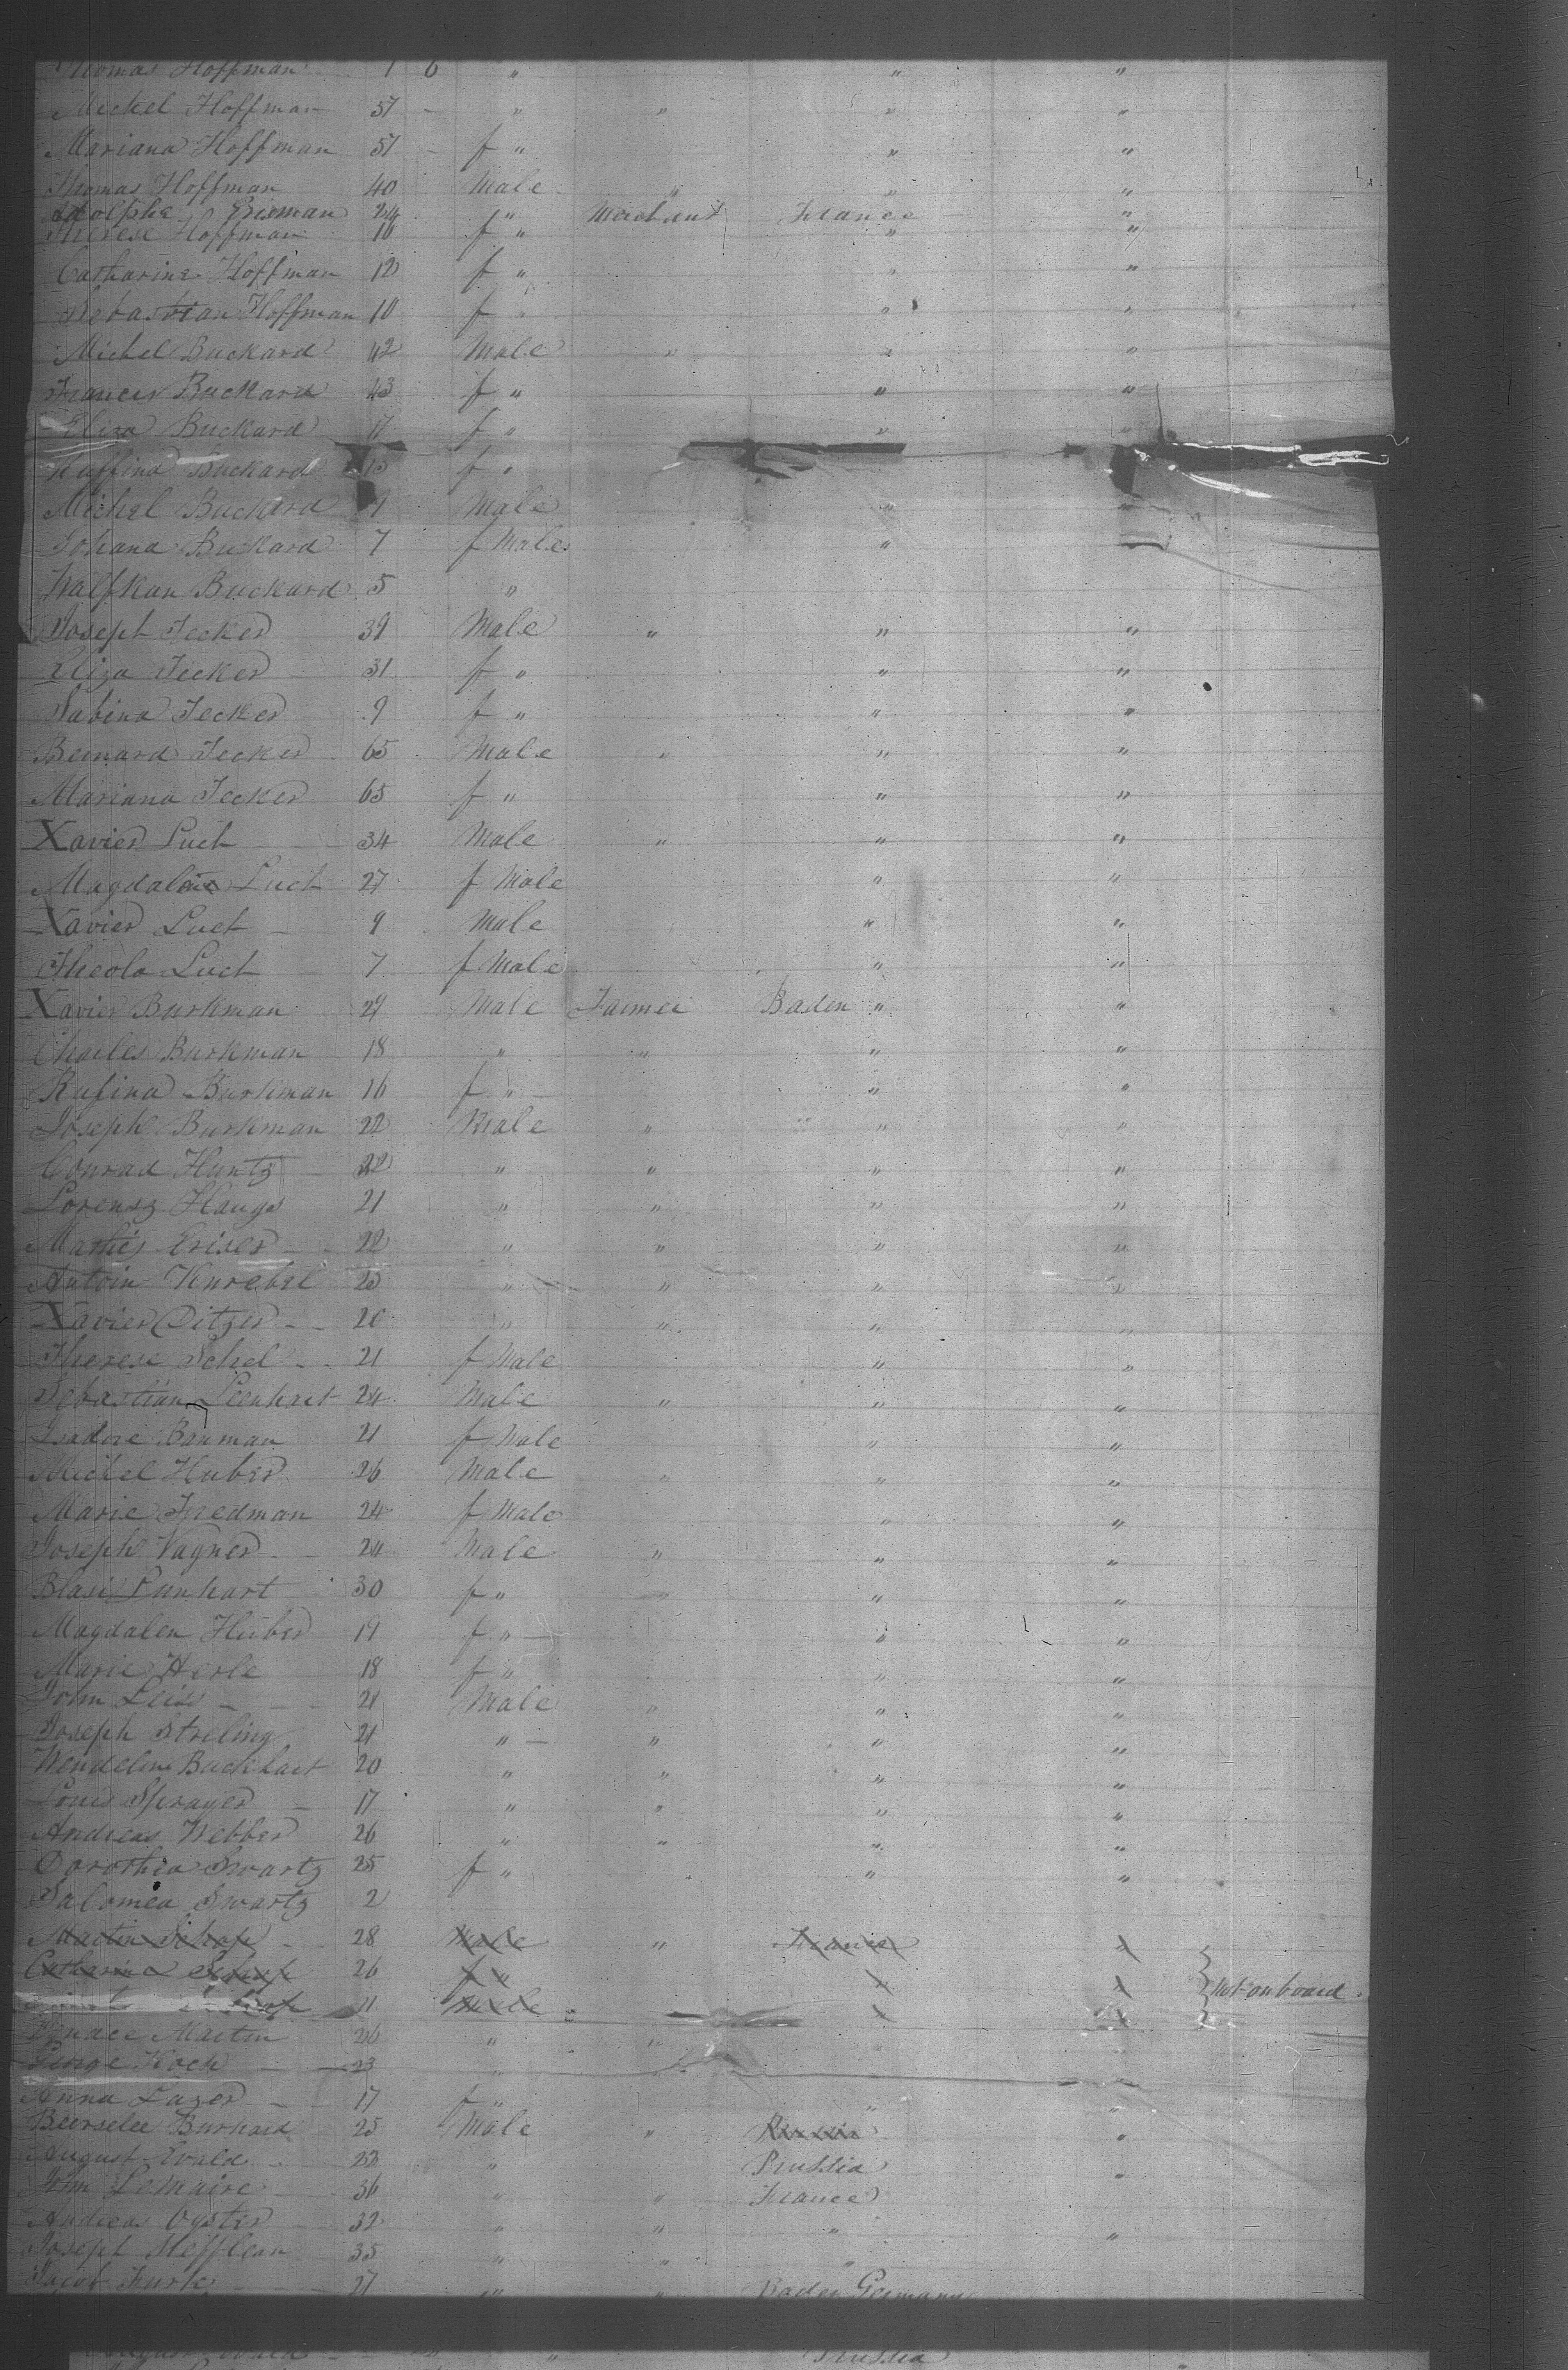 Thomas Hoffman 1 6 " " "
Mickel Hoffman 57 - " " " "
Mariana Hoffman 57 - f " " "
Thomas Hoffman 40 Male " " "
Adolphe Erisman 24 " Merchant France "
Therese Hoffman 16 f " " "
Catharine Hoffman 12 f " " "
Sebastian Hoffman 10 f " " "
Michel Buckard 42 Male " " "
Frances Buckard 43 f " " "
Eliza Buckard 17 f " " "
Ruffina Buckard 15 f "
Michel Buckard 9 Male " "
Johana Buckard 7 f Male "
Walfkan Buckard 5 "
Joseph Jecker 39 Male " " "
Eliza Jecker 31 f " " "
Sabina Jecker 9 f " " "
Bernard Jecker 65 Male " " "
Mariana Jecker 65 f " " "
Xavier Luct 34 Male " " "
Magdalene Luct 27 f Male " "
Xavier Luct - 9 Male " "
Theola Luct 7 f Male " "
Xavier Burkman 29 Male Farmer Baden " "
Charles Burkman 18 " " " "
Rufina Burkman 16 f " - " "
Joseph Burkman 22 Male " " " "
Conrad Huntz 22 " " " "
Lorensz Haugs 21 " " " "
Mathis Griser 22 " " " "
Antoin Knrebel 25 " " " "
Xavier Ditzer 20 " " " "
Therese Schel 21 f Male " "
Sebastian Leenhart 24 Male " " "
Isadore Bauman 21 f Male " "
Michel Huber 26 Male " " "
Marie Fredman 24 f Male " "
Joseph Vagner 24 Male " " "
Blasi Lunhart 30 f " " " "
Magdalen Huber 19 f " - " "
Marie Herle 18 f " " "
John Leis 21 Male " " "
Joseph Streling 21 " - " " "
Wendelin Buckhart 20 " " " "
Louis Sprayer 17 " " " "
Andreas Webber 26 " " " "
Dorothea Swartz 25 f " " "
Salomea Swartz 2
Martin Schaf 28 Male " France "
Catharina Schaf 26 f " " " not on board
Schaf 11 Male " "
Ignace Martin 26 " "
George Koch 23
Anna Lazer 17 f " " "
Beerselee Burkard 25 Male " Russia "
August Evald 23 " Prussia "
John Lemaire 36 " " France
Andreas Oyster 32 " " " "
Joseph Hefflean 35 " " "
Jacob Kurtz 27 " " Baden Germany
Prussia